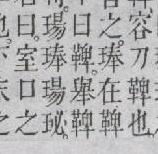 容刀鞞也
之琫在鞞
曰鞞舉鞞
瑒琫瑒珌
曰室口之
也下末之